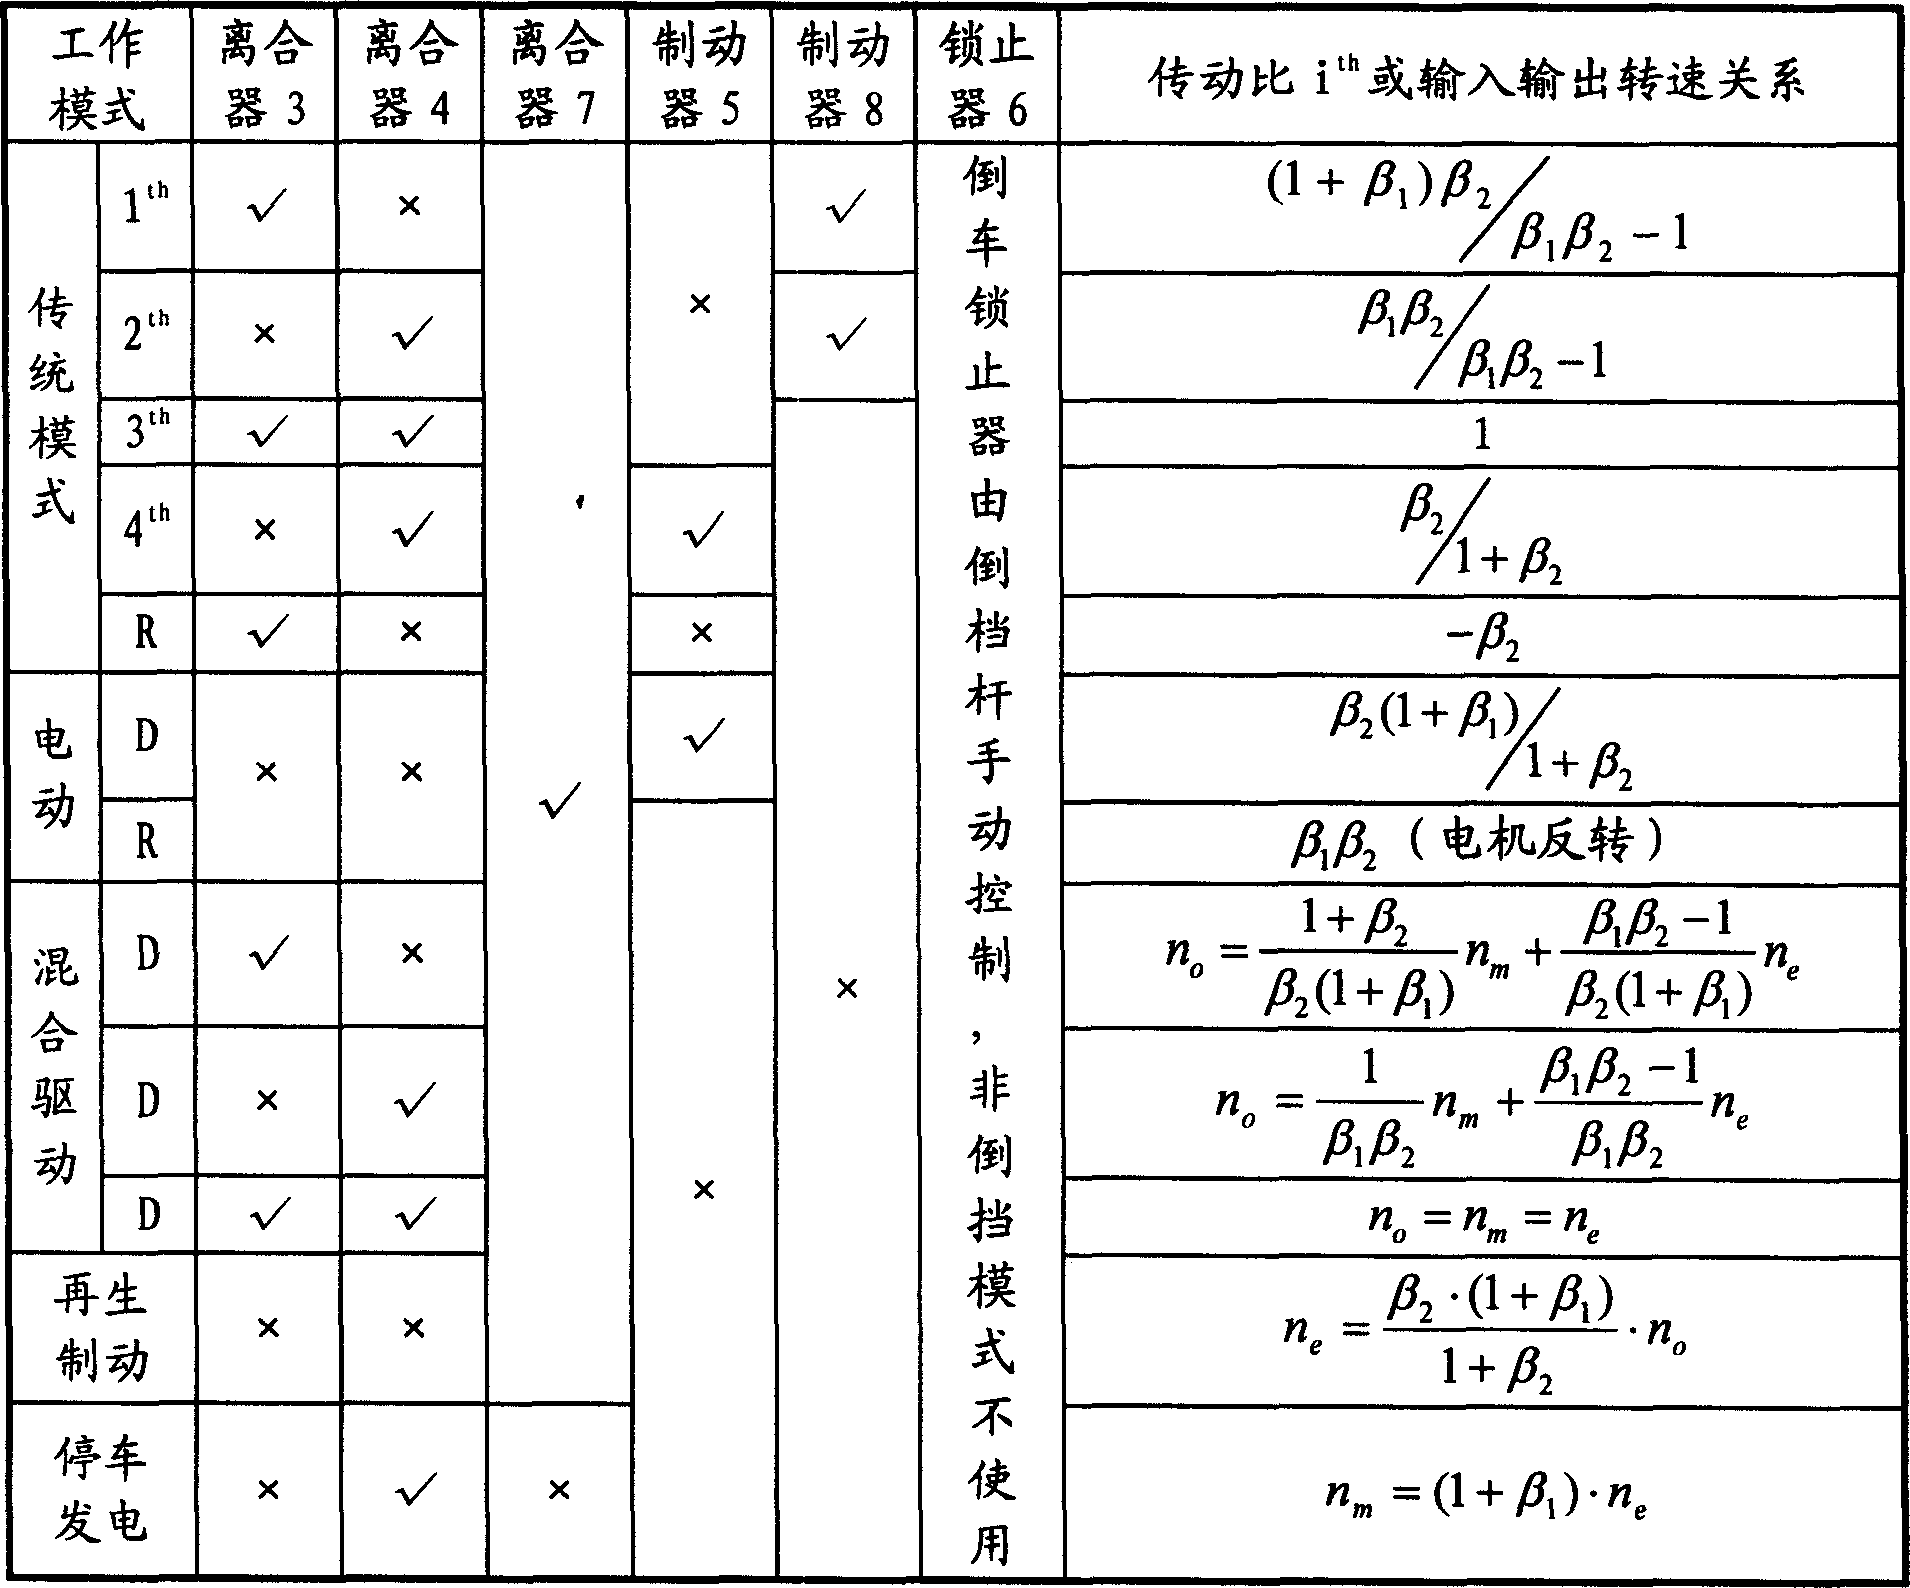 工作模式 离合器3 离合器4 离合器7 制动器5 制动器8 锁止器6 传动比 i^th 或输入输出转速关系
传统模式
1^th √ × √ (1 + β₁)β₂/β₁β₂ − 1
2^th × √ × √ β₁β₂/β₁β₂ − 1
3^th √ √ 1
4^th × √ √ β₂/1 + β₂
R √ × × −β₂
电动
D × × √ √ β₂(1 + β₁)/1 + β₂
R β₁β₂ (电机反转)
混合驱动
D √ × × n_o = (1 + β₂)/(β₂(1 + β₁)) n_m + (β₁β₂ − 1)/(β₂(1 + β₁)) n_e
D × √ n_o = 1/(β₁β₂) n_m + (β₁β₂ − 1)/(β₁β₂) n_e
D √ √ × n_o = n_m = n_e
再生制动 × × n_e = (β₂·(1 + β₁))/(1 + β₂) · n_o
停车发电 × √ × n_m = (1 + β₁)·n_e
倒车锁止器由倒档杆手动控制,非倒挡模式不使用